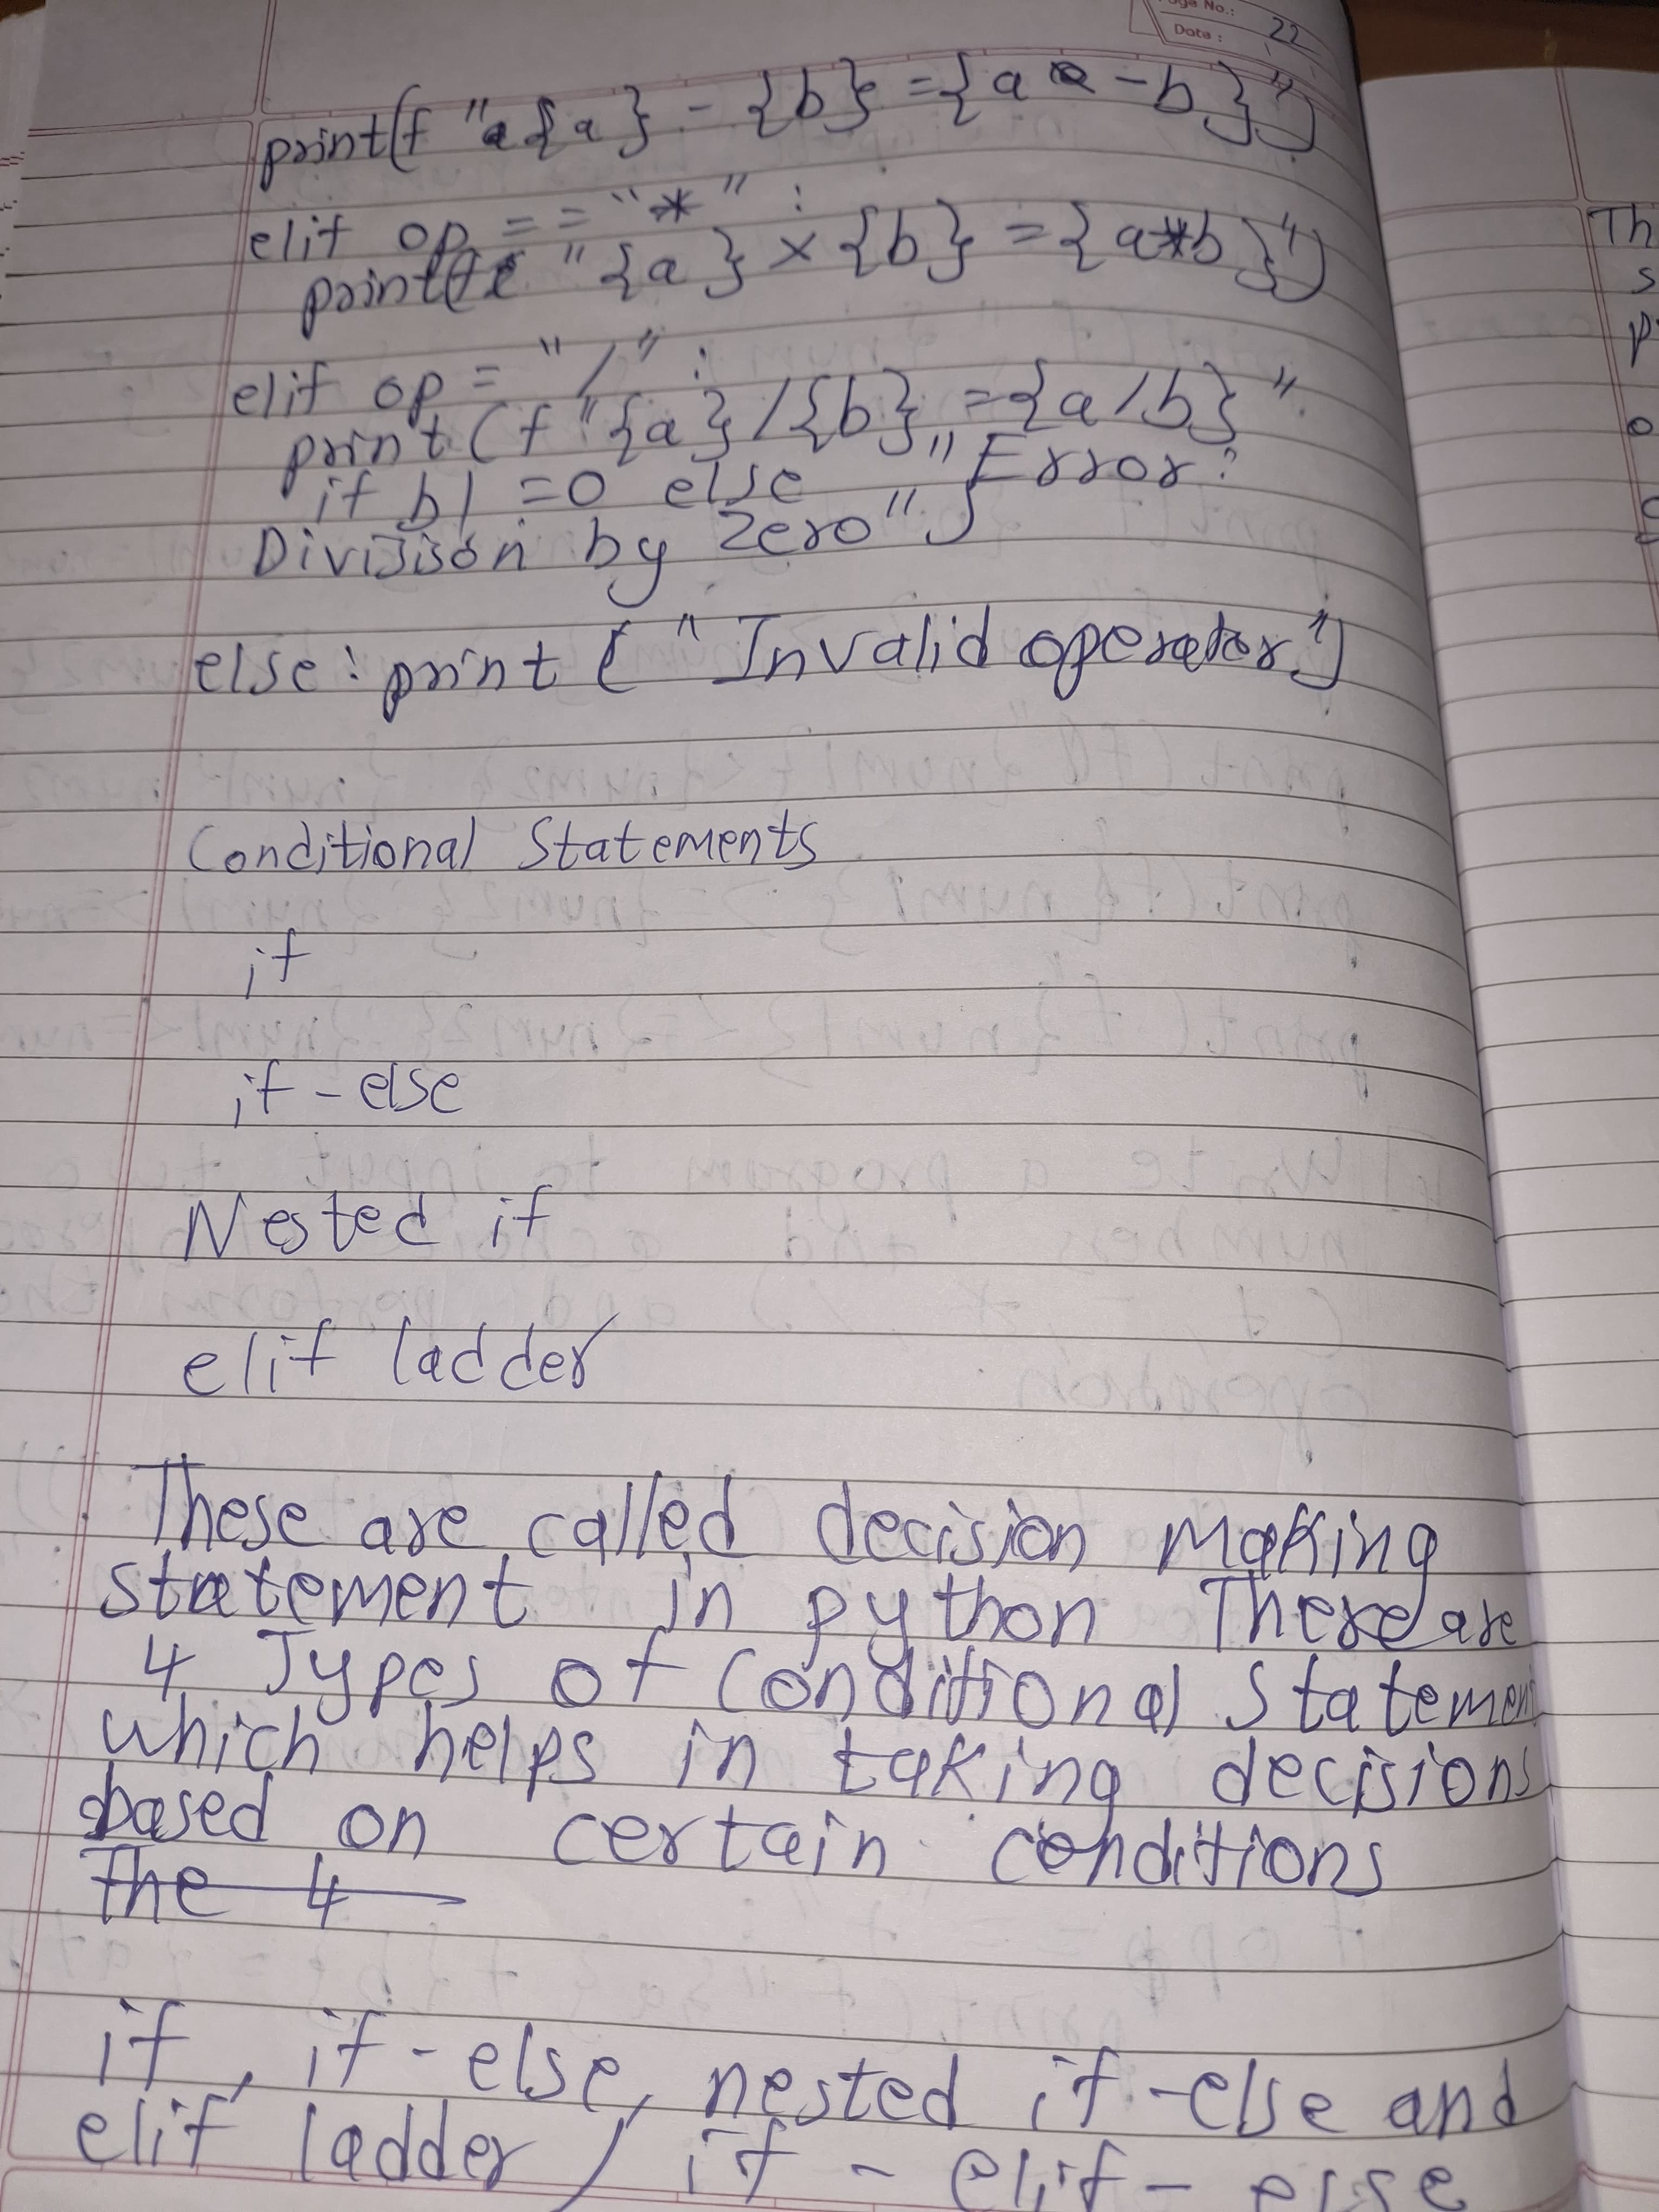 Page No.: 22
Date :
print(f "{a} - {b} = {a - b}")
elif op == "*" :
print(f "{a} x {b} = {a*b}")
elif op = "/" :
print(f "{a} / {b} = {a/b}"
if b! = 0 else "Error:
Division by Zero")
else : print ( "Invalid operator")
Conditional Statements
if
if - else
Nested if
elif ladder
These are called decision making
statement in python There are
4 Types of Conditional Statemens
which helps in taking decisions
based on certain conditions
The 4
if, if - else, nested if - else and
elif ladder / if - elif - else
Th
s
p
o